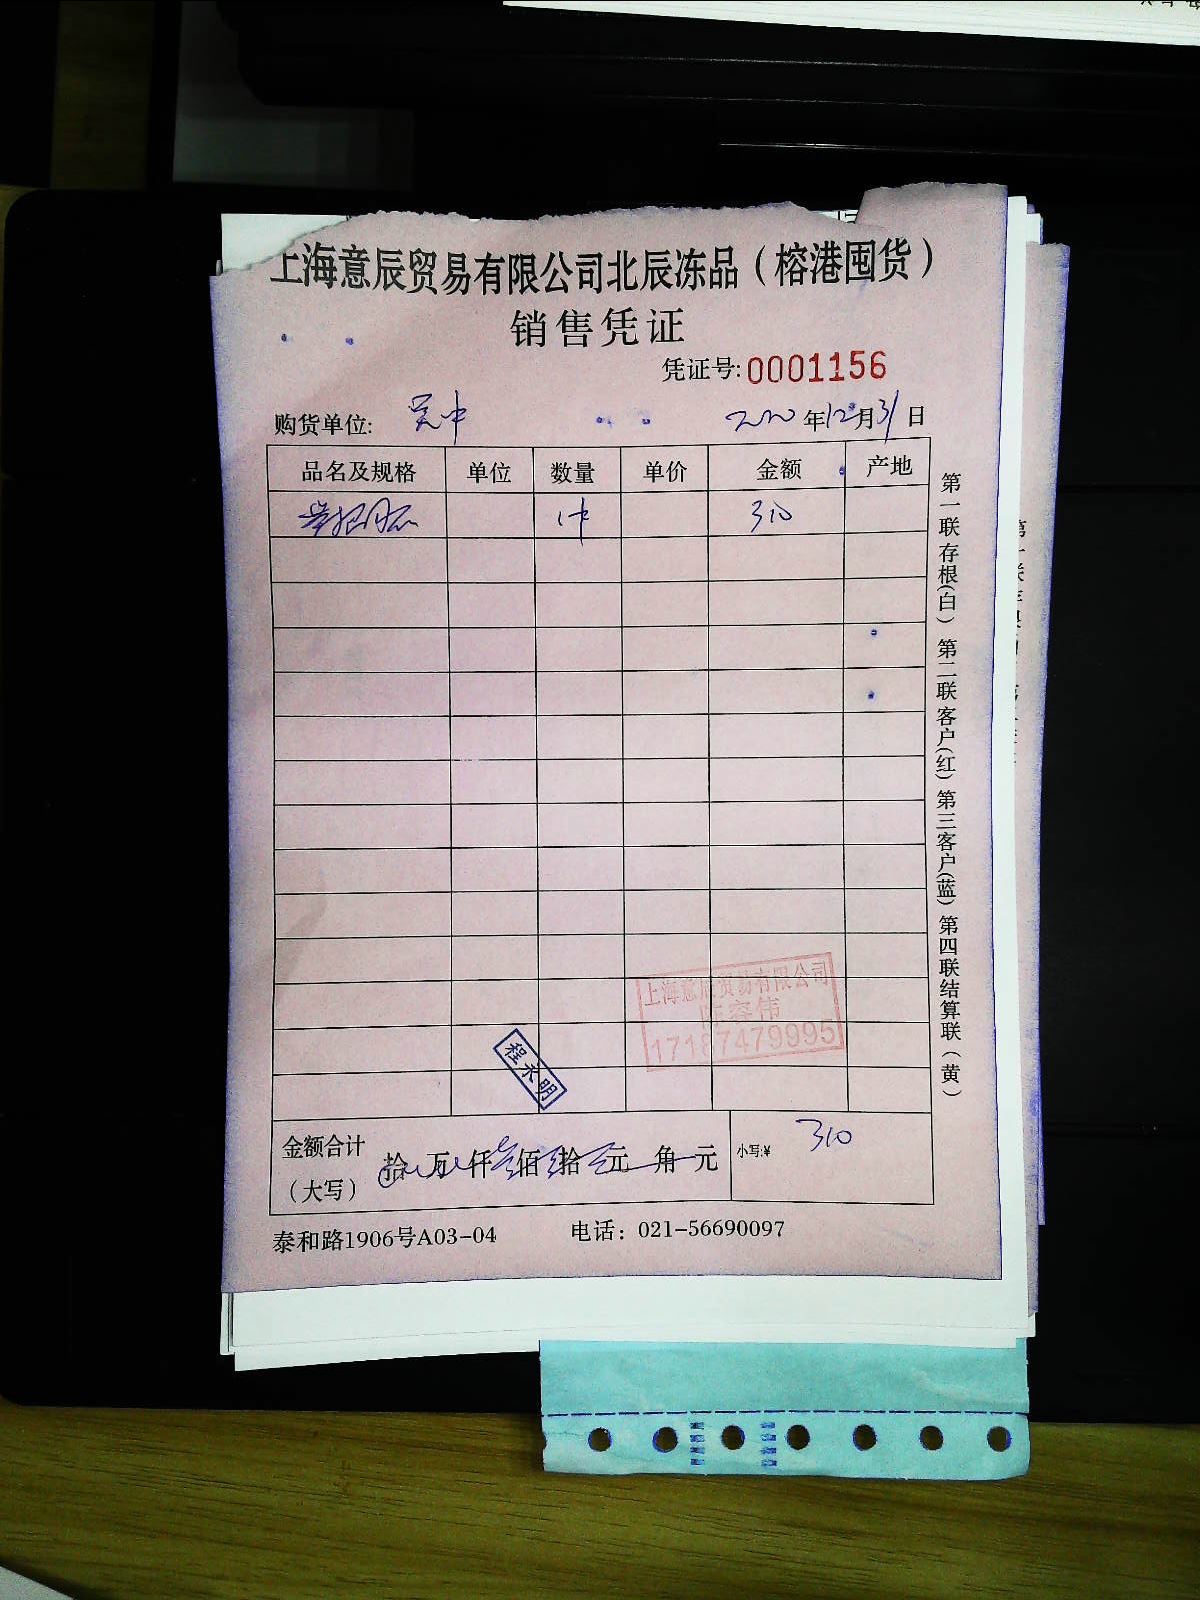 上海意辰贸易有限公司北辰冻品（榕港囤货）
销售凭证
凭证号:0001156
购货单位: 吴中 2020年12月31日
品名及规格 单位 数量 单价 金额 产地
1件 310
上海意辰贸易有限公司
陈容伟
17187479995
程永明
金额合计（大写） 拾 万 仟 叁佰 壹拾 元 角 元 小写:¥ 310
泰和路1906号A03-04 电话：021-56690097
第一联存根(白) 第二联客户(红) 第三客户(蓝) 第四联结算联（黄）